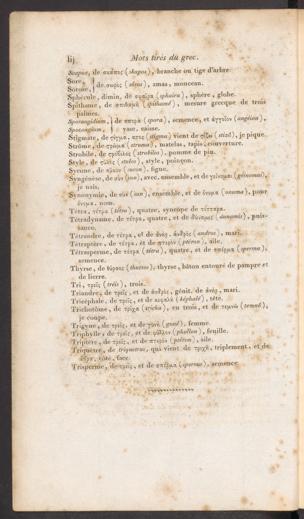 lij Mots tirés du grec.
Scapus, de σκάπος (skapos), branche ou tige d'arbre.
Sore,
Sorose, } de σωρὸς (sôros), amas, monceau.
Sphécule, dimin. de σφαῖρα (sphaira), sphère, globe.
Spithame, de σπιθαμὴ (spithamé), mesure grecque de trois
palmes.
Sporangidium, } de σπορὰ (spora), semence, et ἀγγεῖον (angéion),
Sporangium, } vase, caisse.
Stigmate, de στίγμα, στιγμα (stigma) vient de στίζω (stizô), je pique.
Strôme, de στρῶμα (stroma), matelas, tapis, couverture.
Strobile, de στρόβιλος (strobilos), pomme de pin.
Style, de στῦλος (stulos), style, poinçon.
Sycone, de σῦκον (sucon), figue.
Syngénèse, de σὺν (sun), avec, ensemble, et de γείνομαι (géinomai),
je nais.
Synonymie, de σὺν (sun), ensemble, et de ὄνομα (onoma), pour
ὄνυμα, nom.
Tétra, τέτρα (tétra), quatre, syncope de τέτταρα.
Tétradyname, de τέτρα, quatre, et de δύναμις (dunamis), puis-
sance.
Tétrandre, de τέτρα, et de ἀνὴρ, ἀνδρὸς (andros), mari.
Tétraptère, de τέτρα, et de πτερὸν (ptéron), aile.
Tétrasperme, de τέτρα (tétra), quatre, et de σπέρμα (sperma),
semence.
Thyrse, de θύρσος (thursos), thyrse, bâton entouré de pampre et
de lierre.
Tri, τρεῖς (tréis), trois.
Triandre, de τρεῖς, et de ἀνδρὸς, génit. de ἀνὴρ, mari.
Tricéphale, de τρεῖς, et de κεφαλὴ (képhalé), tête.
Trichotôme, de τρίχα (tricha), en trois, et de τεμνῶ (temnô),
je coupe.
Trigyne, de τρεῖς, et de γυνὴ (guné), femme.
Triphylle, de τρεῖς, et de φύλλον (phullon), feuille.
Triptère, de τρεῖς, et de πτερὸν (ptéron), aile.
Triquètre, de triquetrus, qui vient de τριχῆ, triplement, et de
ἕδρα, côté, face.
Trisperme, de τρεῖς, et de σπέρμα (sperma), semence.